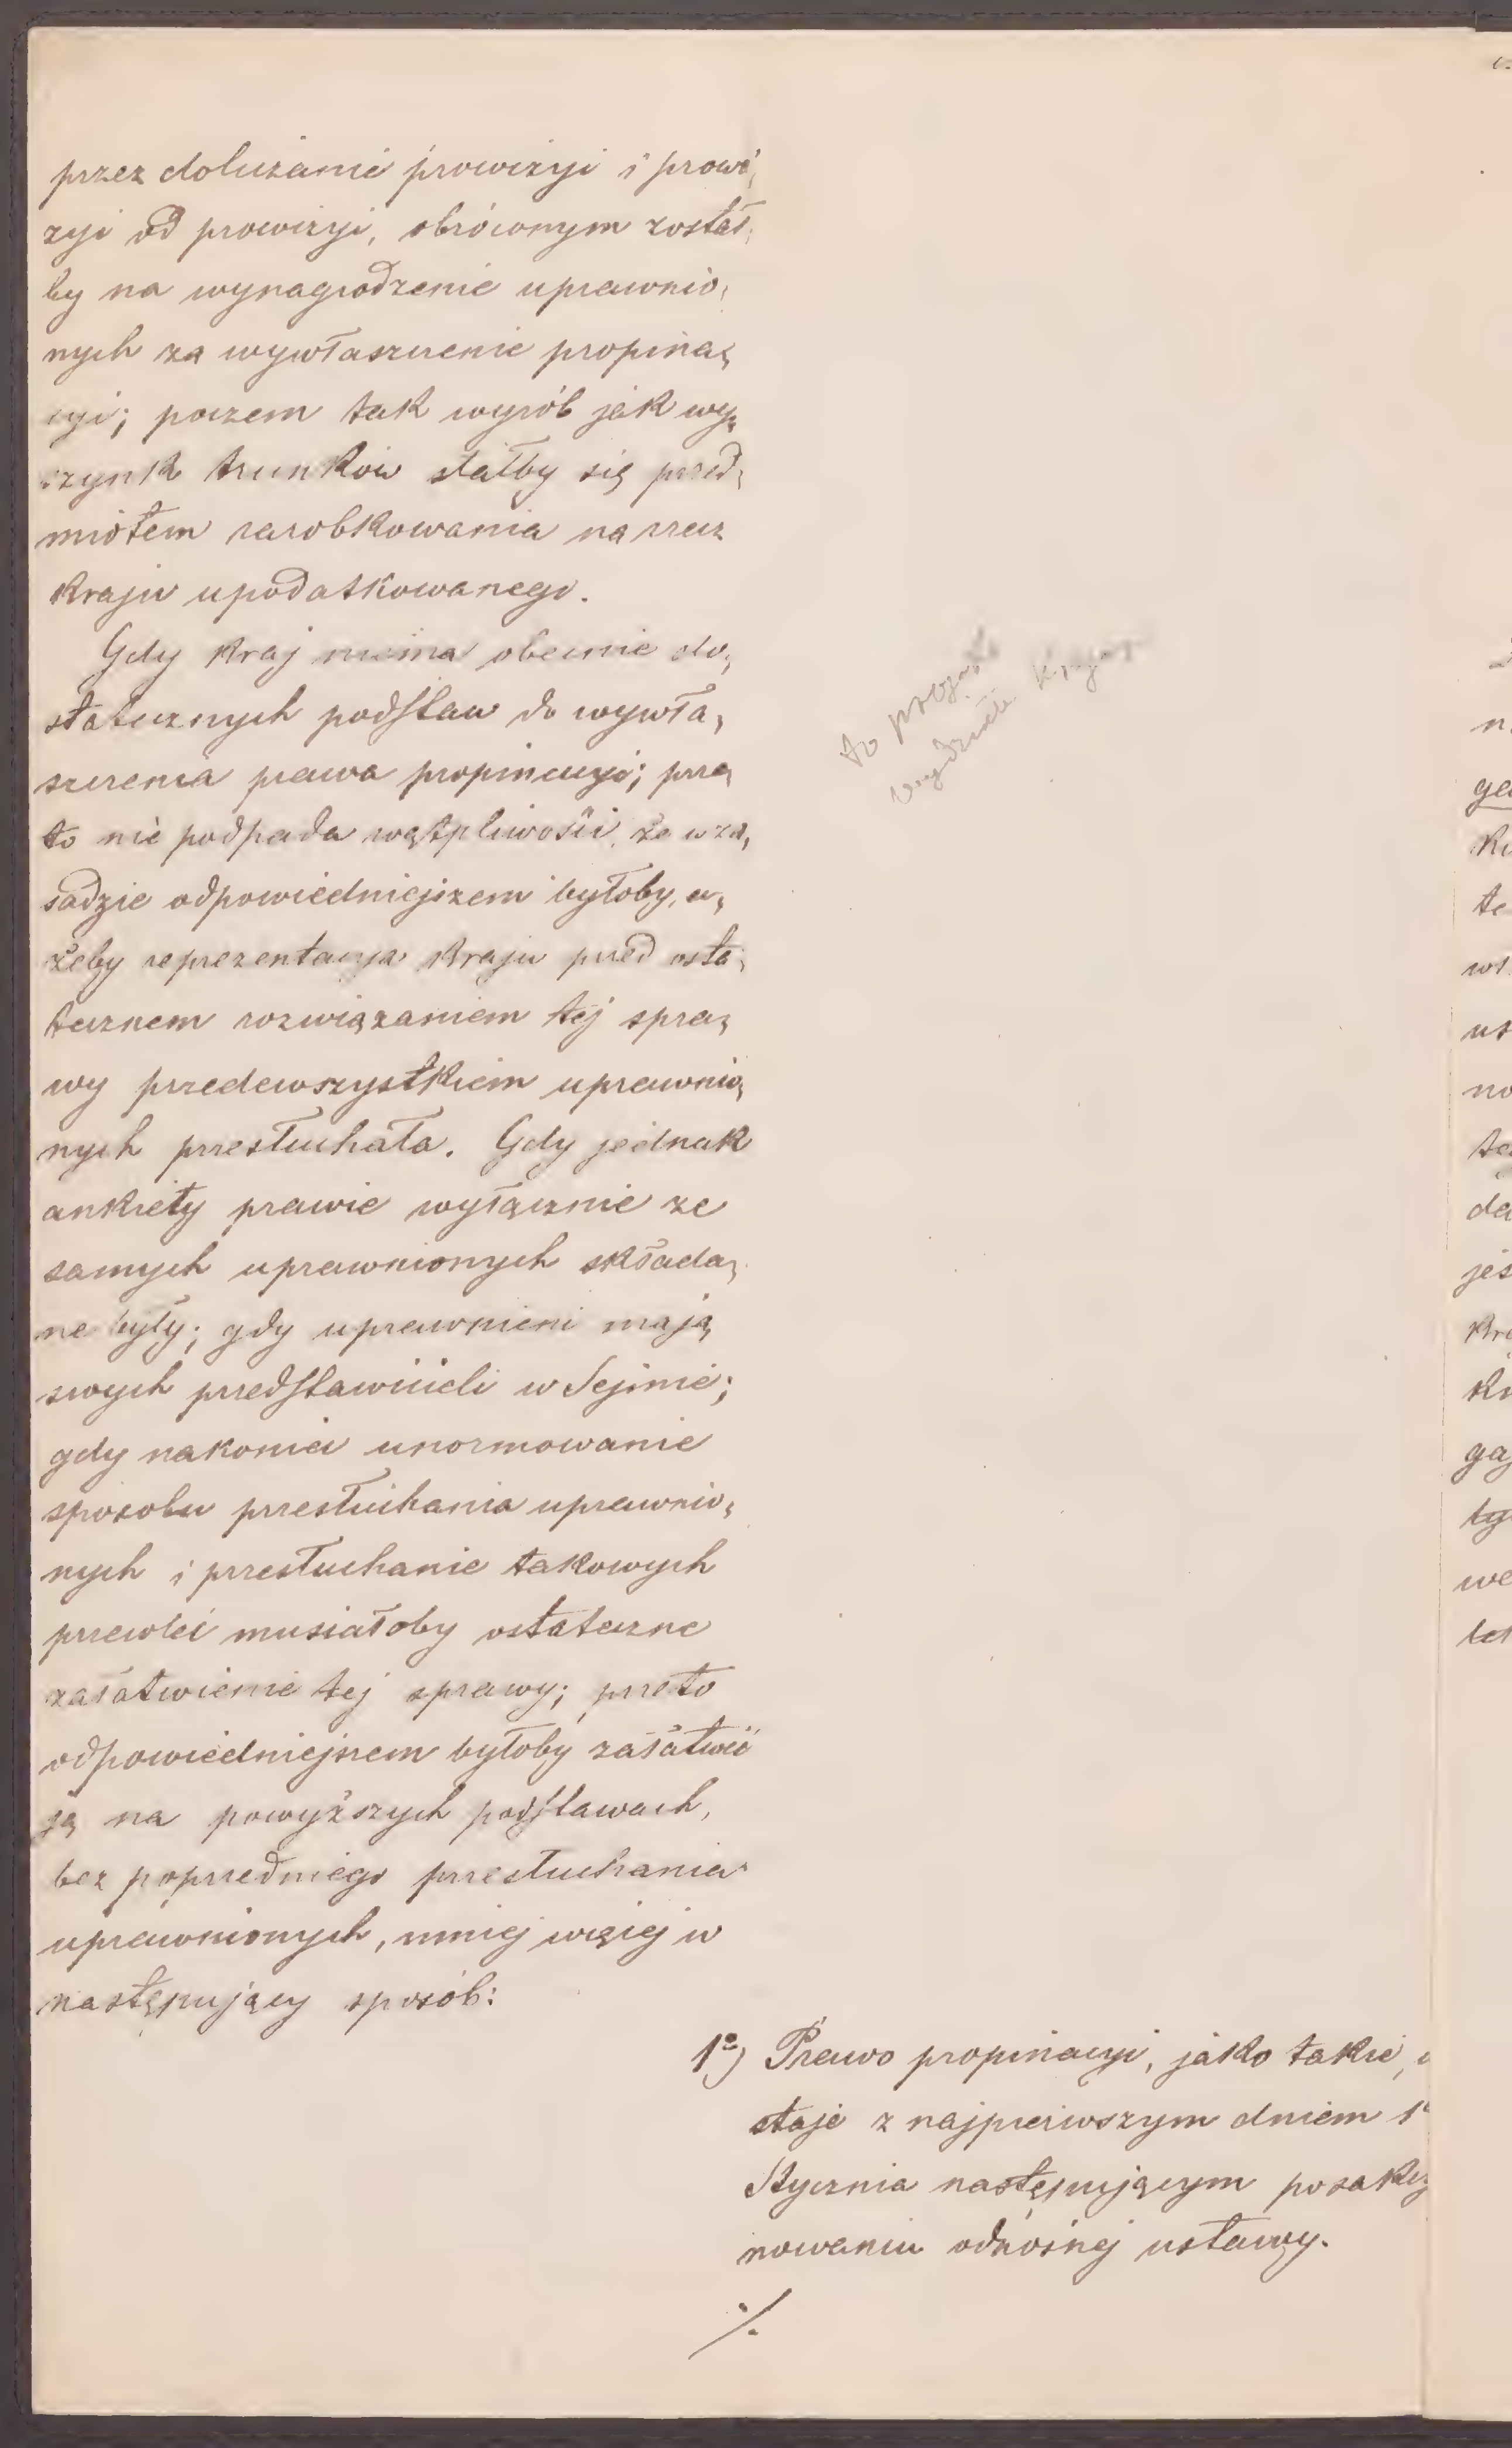 przez doliczanie prowizyi i prowi,
zyi od prowizyi, obróconym został,
by na wynagrodzenie uprawnio,
nych za wywłaszczenie propina,
cyi; poczem tak wyrób jak wy,
szynk trunków stałby się przed,
miotem zarobkowania na rzecz
kraju upodatkowanego.
Gdy kraj niema obecnie do,
statecznych podstaw do wywła,
szczenia prawa propinacyi; prze,
to nie podpada wątpliwości, że w za,
sadzie odpowiedniejszem byłoby, a,
żeby reprezentacya kraju przed osta,
tecznem rozwiązaniem tej spra,
wy przedewszystkiem uprawnio,
nych przesłuchała. Gdy jednak
ankiety prawie wyłącznie ze
samych uprawnionych składa,
ne były; gdy uprawnieni mają
swych przedstawicieli w Sejmie;
gdy nakoniec unormowanie
sposobu przesłuchania uprawnio,
nych i przesłuchanie takowych
przewlec musiałoby ostateczne
załatwienie tej sprawy; przeto
odpowiedniejszem byłoby załatwić
ją na powyższych podstawach,
bez poprzedniego przesłuchania
uprawnionych, mniej więcej w
następujący sposób:
to
1o) Prawo propinacyi, jako takie,
staje z najpierwszym dniem 1o
Stycznia następującym po sakcy
nowaniu odnośnej ustawy.
./.